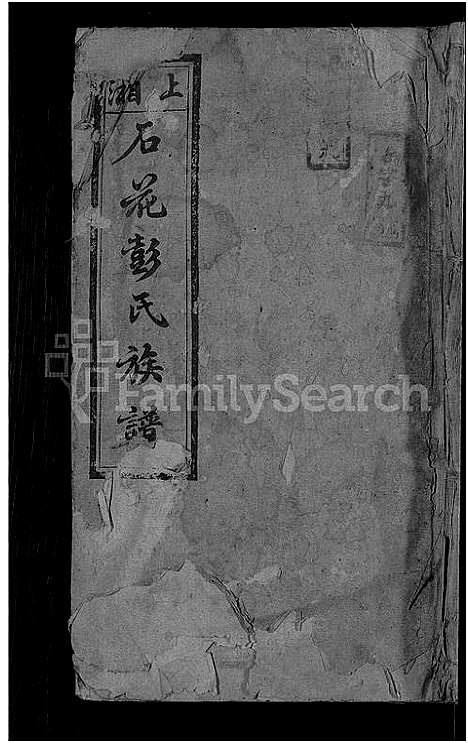 上湘
石花彭氏族譜
FamilySearch